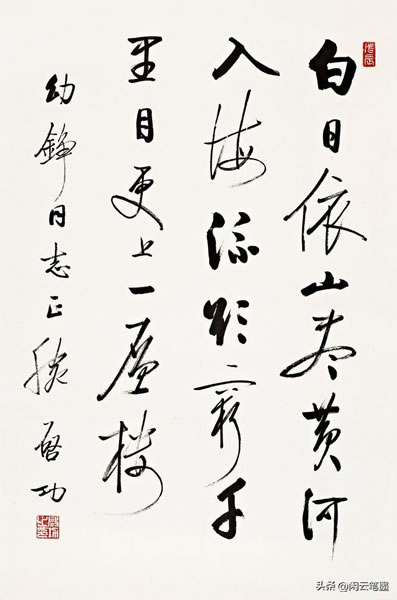 白日依山尽黄河
入海流欲穷千
里目更上一层楼
幼錚同志正腕 启功
头条 @闲云笔墨